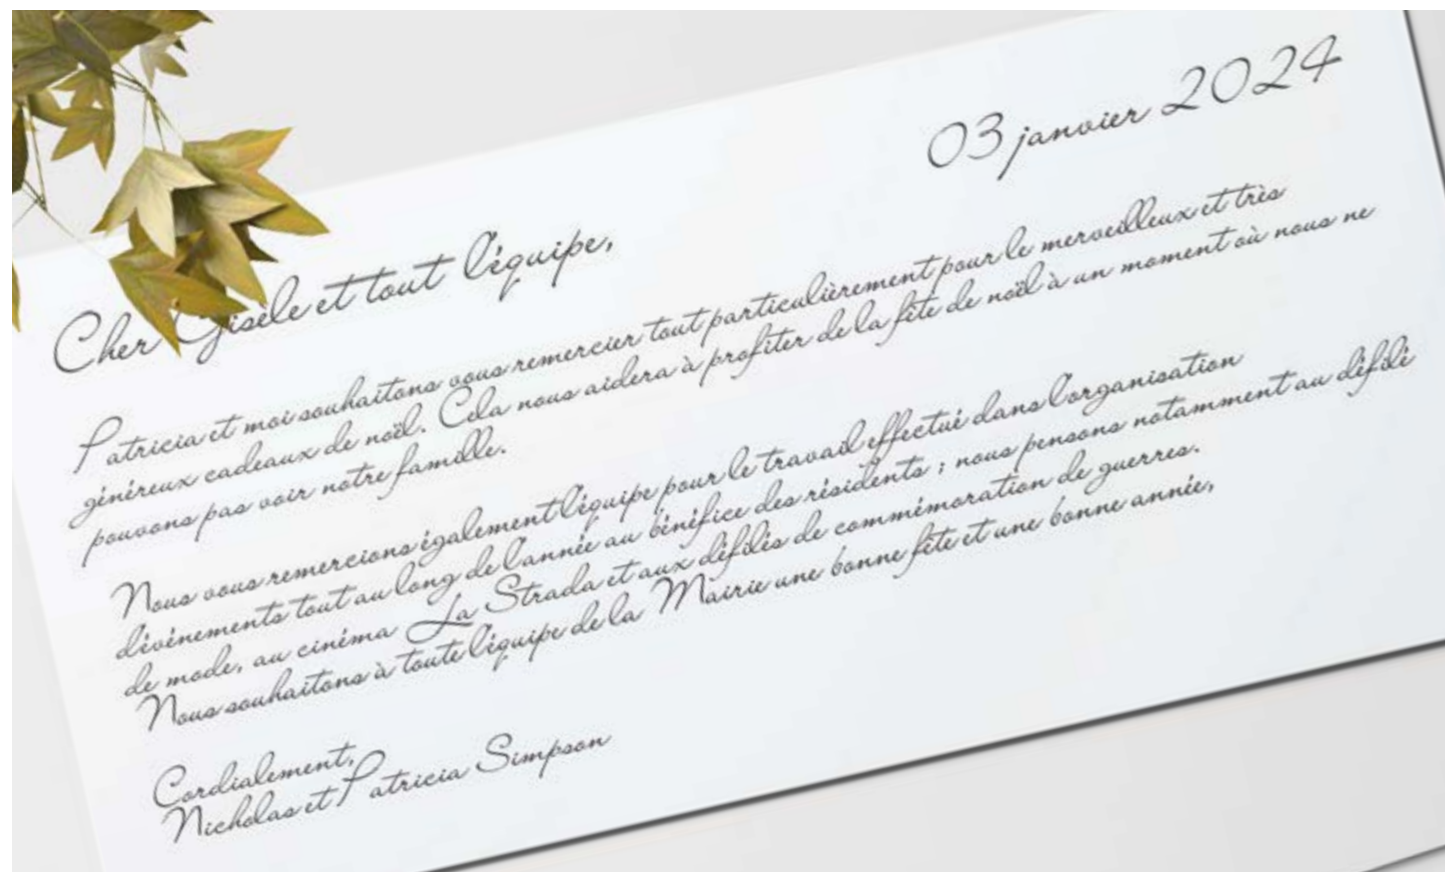 03 janvier 2024
Cher Gisèle et tout l'équipe,
Patricia et moi souhaitons vous remercier tout particulièrement pour le merveilleux et très
généreux cadeaux de noël. Cela nous aidera à profiter de la fête de noël à un moment où nous ne
pouvons pas voir notre famille.
Nous vous remercions également l'équipe pour le travail effectué dans l'organisation
d'événements tout au long de l'année au bénéfice des résidents ; nous pensons notamment au défilé
de mode, au cinéma La Strada et aux défilés de commémoration de guerres.
Nous souhaitons à toute l'équipe de la Mairie une bonne fête et une bonne année,
Cordialement,
Nicholas et Patricia Simpson